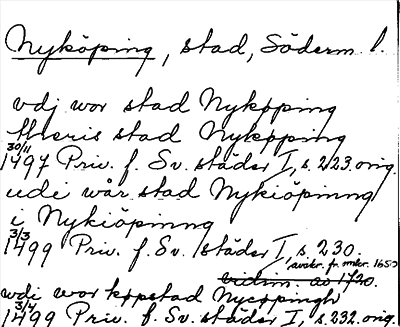 Nyköping, stad, Söderm. l.
vdj wor stad Nykøping
thveris stad Nykøpping
30/11
1497 Priv. f. Sv. städer I, s. 223. orig.
udi wår stad Nykiöpinng
i Nykiöpinng
3/3
1499 Priv. f. Sv. städer I, s. 230.
avskr. fr. mitten 1650
vidim. av 1720.
wdi wor køpstad Nycopingh
3/4
1499 Priv. f. Sv. städer I, s. 232. orig.